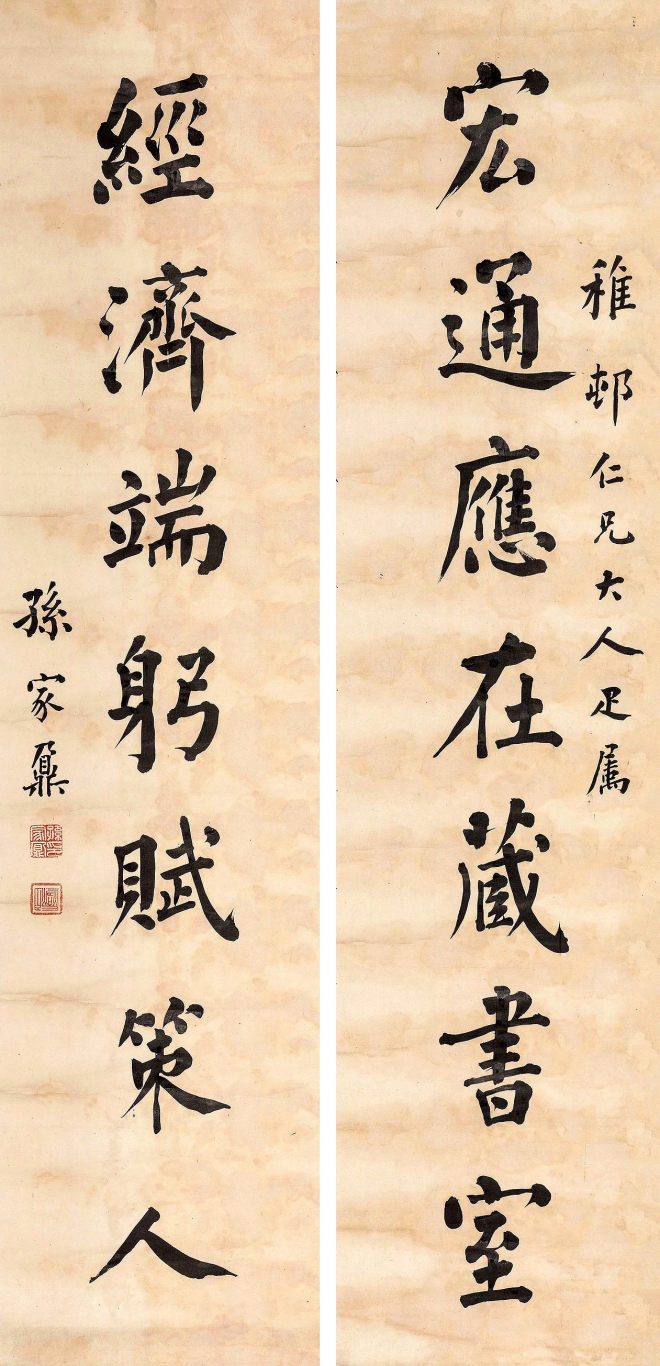 稚邨仁兄大人疋属
宏通應在蔵書室
經濟端躬賦策人
孫家鼐